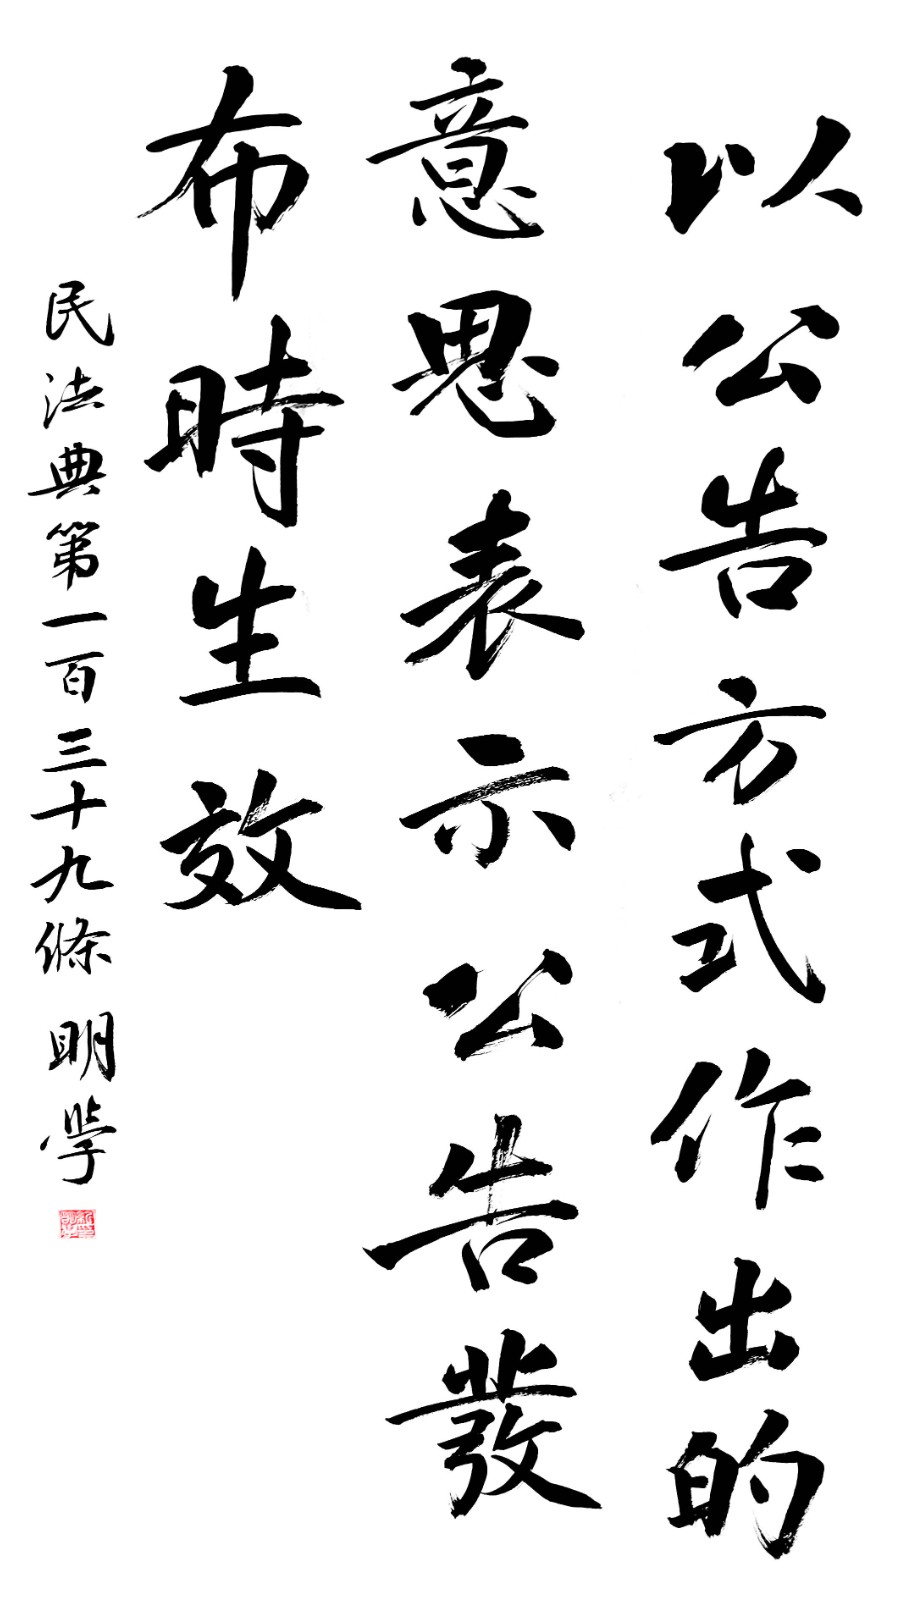 以公告方式作出的
意思表示公告發
布時生效
民法典第一百三十九條 明學